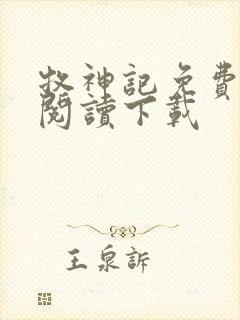 牧神記免費
閱讀下載
王泉訴